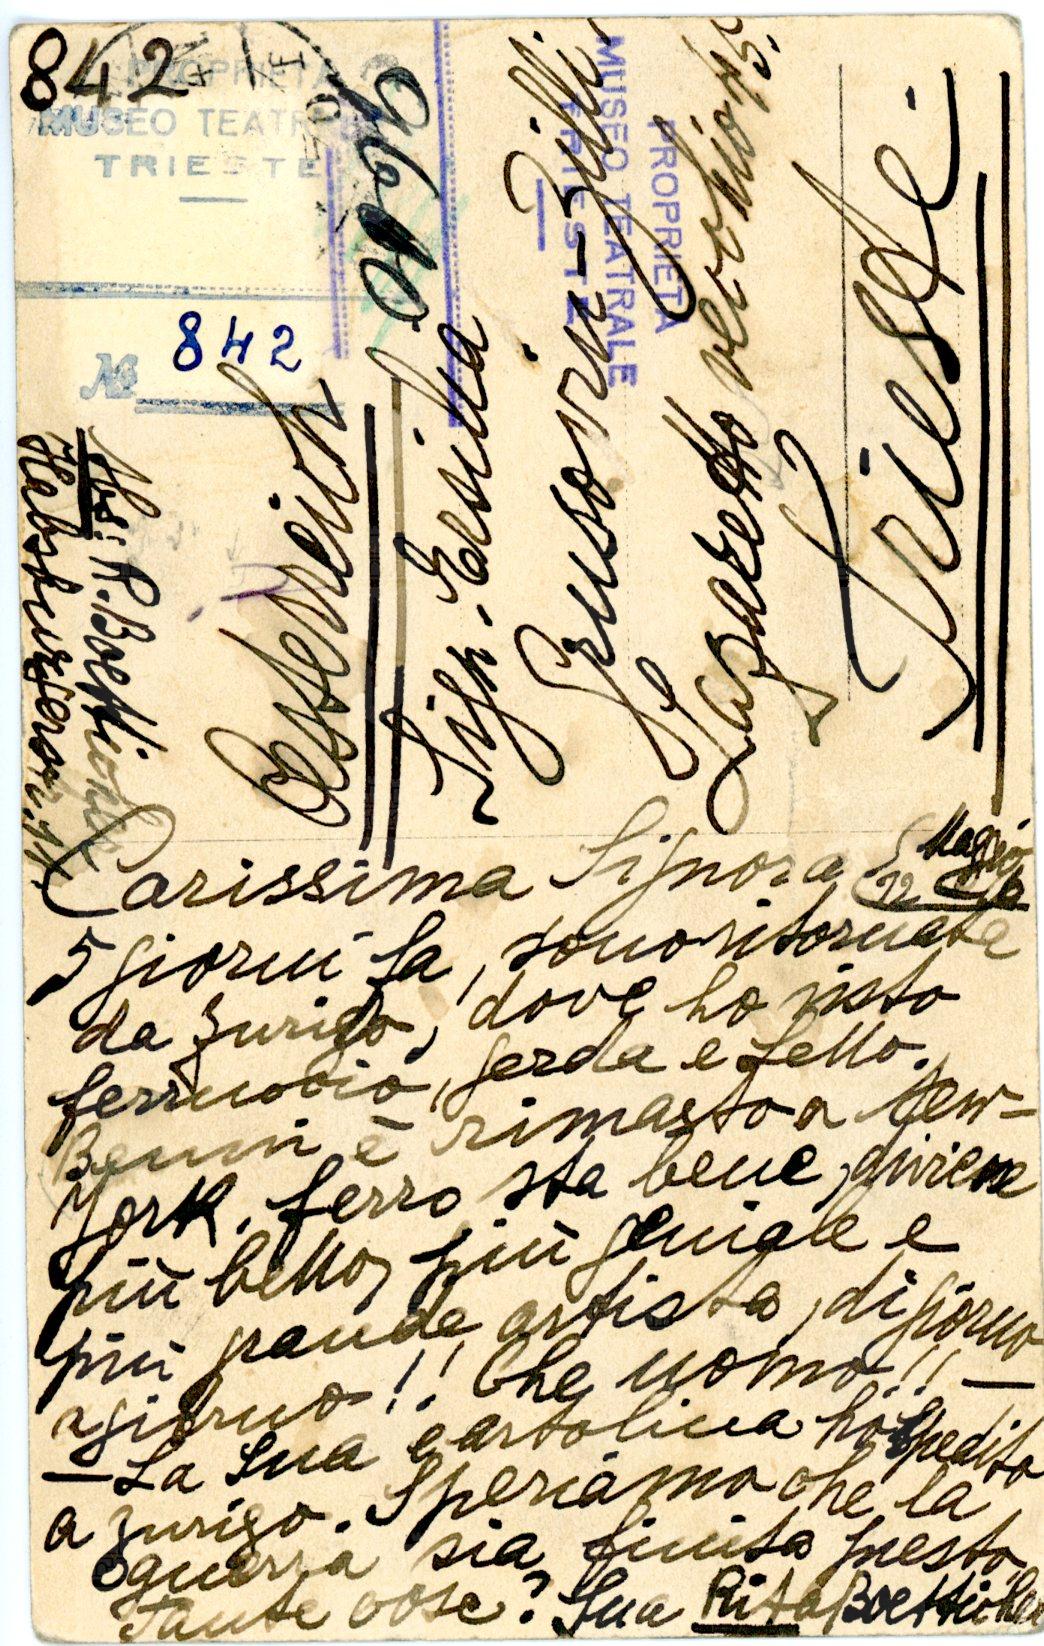 842
PROPRIETÀ
MUSEO TEATRALE
TRIESTE
№ 842
PROPRIETÀ
MUSEO TEATRALE
TRIESTE
Abs: R. Boetticher
Habsburgerstr. 11.
Oesterreich
Sign. Ersilia
Grusovin-Zilli.
Lazzeretto vecchio
Trieste.
Carissima Signora
Maggio
12
5 giorni fa, sono ritornata
da Zurigo, dove ho visto
Ferruccio, Gerda e Lello.
Benni è rimasto a New-
York. Ferro sta bene, diviene
più bello, più geniale e
più grande artista, di giorno
a giorno!! Che uomo!! —
— La Sua cartolina ho spedito
a Zurigo. Speriamo che la
guerra sia finita presto.
Tante cose! Sua Rita Boetticher